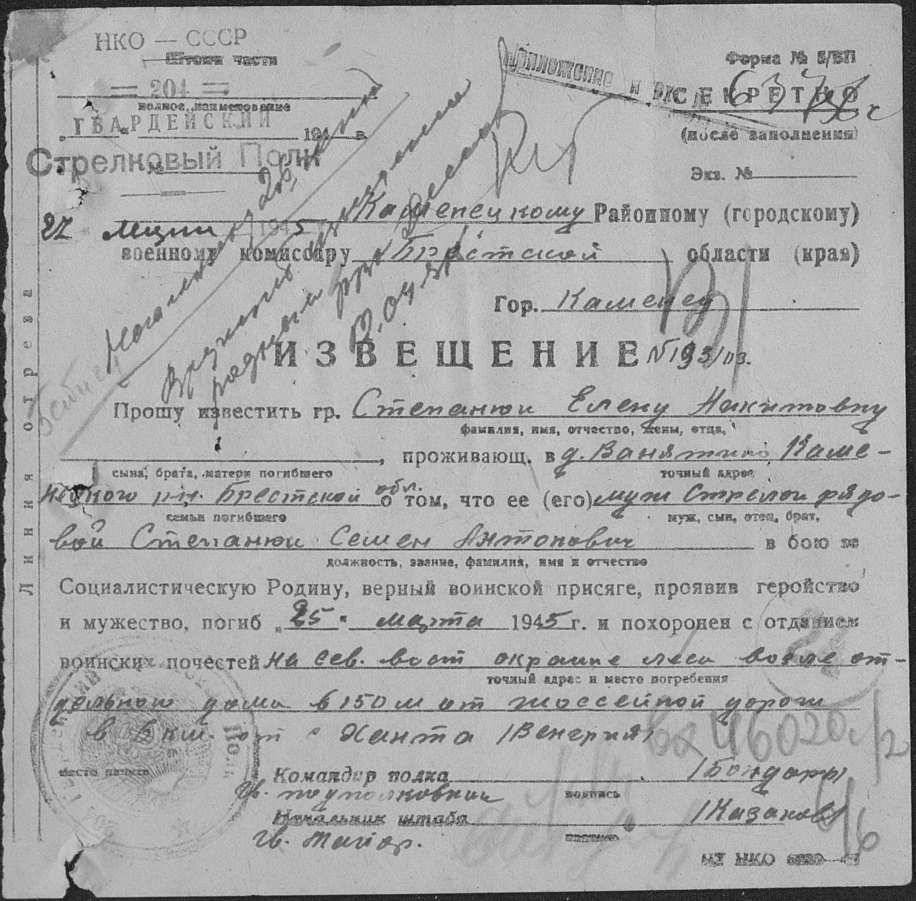 НКО — СССР
Штамп части
Форма № 5/БП
— 204 —
СЕКРЕТНО
полное наименование
(после заполнения)
ГВАРДЕЙСКИЙ
194 г.
Стрелковый Полк
№
Экз. №
27 марта 1945
Каменецкому Районному (городскому)
военному комиссару Брестской области (края)
Гор. Каменец
ИЗВЕЩЕНИЕ №193/03.
Прошу известить гр. Степанюк Елену Никитовну
фамилия, имя, отчество, жены, отца,
, проживающ. в д. Каме-
сына, брата, матери погибшего
точный адрес
нецкого р-н. Брестской обл. о том, что ее (его) муж Стрелок рядо-
семьи погибшего
муж, сын, отец, брат,
вой Степанюк Семен Антонович в бою за
должность, звание, фамилия, имя и отчество
Социалистическую Родину, верный воинской присяге, проявив геройство
и мужество, погиб „25" марта 1945 г. и похоронен с отданием
воинских почестей на сев. вост окраине леса возле от-
точный адрес и место погребения
дельного дома в 150 м от шоссейной дороги
в км. от с Ханта /Венгрия/
место печати
Командир полка /Бондарь/
Гв. подполковник
подпись
Начальник штаба /Казаков/
Гв. Майор.
подпись
Линия отреза
Приложение к вх.